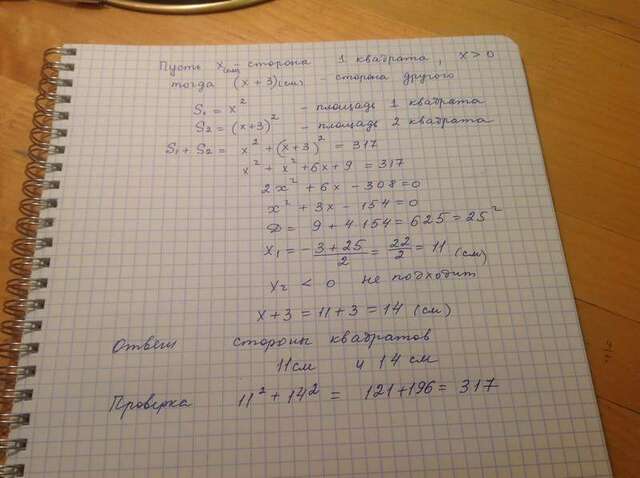 Пусть x(см) сторона 1 квадрата, x > 0
тогда (x + 3)(см) - сторона другого
S₁ = x² - площадь 1 квадрата
S₂ = (x+3)² - площадь 2 квадрата
S₁ + S₂ = x² + (x+3)² = 317
x² + x² + 6x + 9 = 317
2x² + 6x - 308 = 0
x² + 3x - 154 = 0
D = 9 + 4·154 = 625 = 25²
x₁ = -3+25/2 = 22/2 = 11 (см)
x₂ < 0 не подходит
x + 3 = 11 + 3 = 14 (см)
Ответ стороны квадратов
11см и 14 см
Проверка 11² + 14² = 121+196 = 317